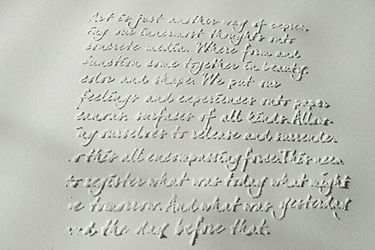 Art is just another way of copen-
ing our innermost thoughts into
concrete media. Where form and
function come together in beauty,
color and shape. We put our
feelings and experiences onto paper
canvas surfaces of all kinds. Allow-
ing ourselves to release and surrender
to this all encompassing force. This need
to register what was today what might
be tomorrow. And what was yesterday
and the day before that.